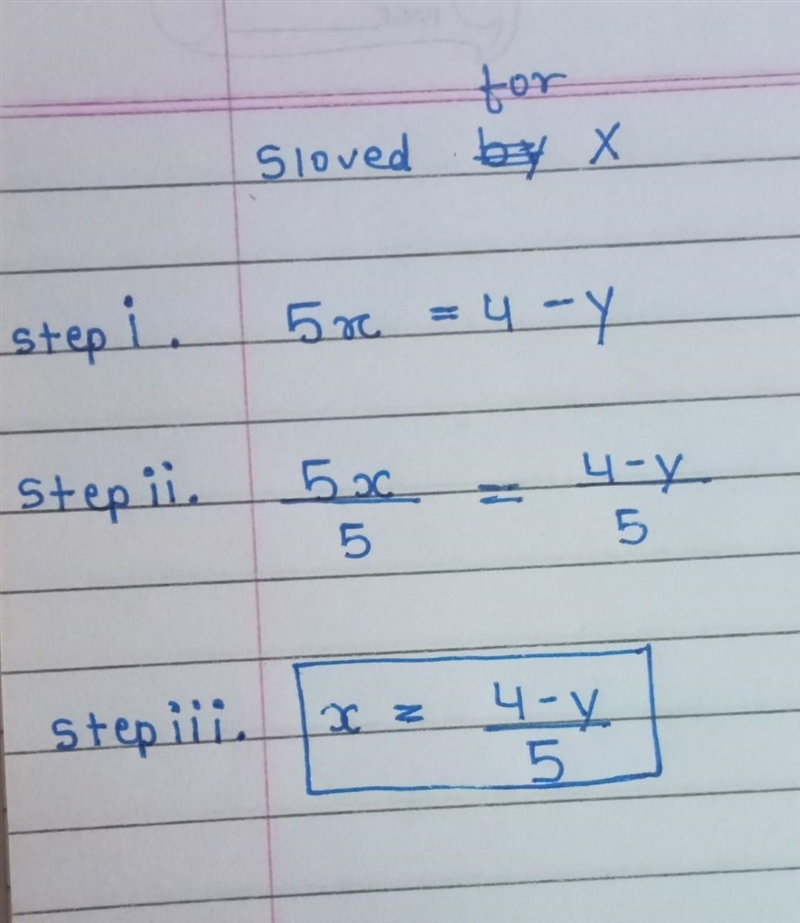 for
Sloved by X
step i. 5x = 4 - y
step ii. 5x/5 = 4-y/5
step iii. x = 4-y/5